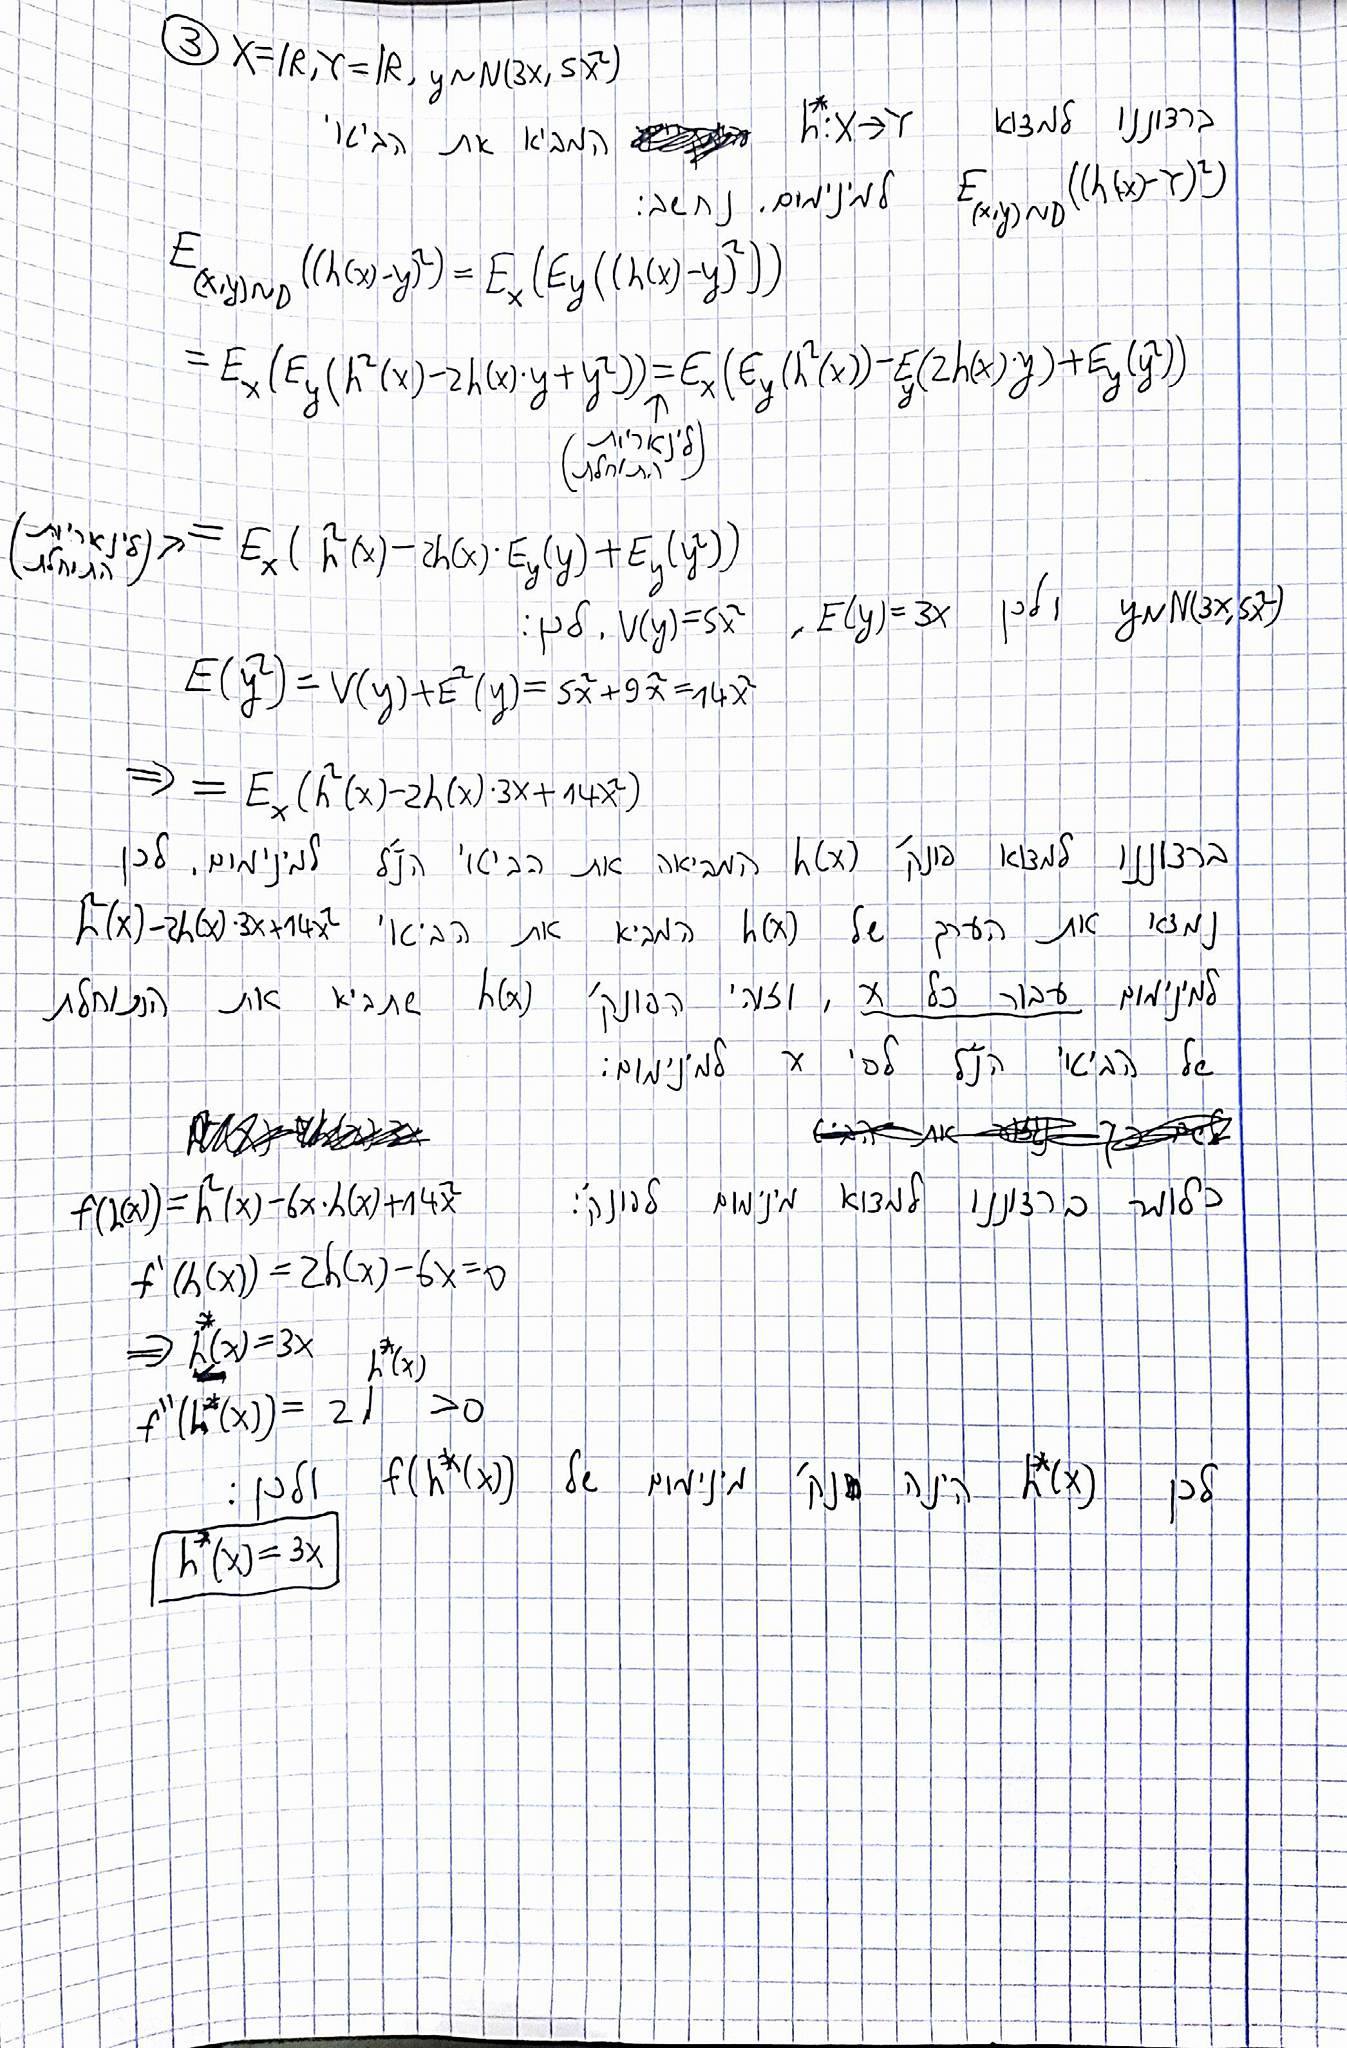 ③ X=ℝ, Y=ℝ, y~N(3x, 5x²)
ברצוננו למצוא h*:X→Y המביא את הביטוי
E_(x,y)~D((h(x)-Y)²) למינימום. נחשב:
E_(x,y)~D((h(x)-y)²) = E_x(E_y((h(x)-y)²))
= E_x(E_y(h²(x)-2h(x)·y+y²)) = E_x(E_y(h²(x))-E_y(2h(x)·y)+E_y(y²))
↑
(לינאריות
התוחלת)
(לינאריות
התוחלת) → = E_x(h²(x)-2h(x)·E_y(y)+E_y(y²))
y~N(3x,5x²) ולכן E(y)=3x, V(y)=5x². לכן:
E(y²)=V(y)+E²(y)=5x²+9x²=14x²
⇒ = E_x(h²(x)-2h(x)·3x+14x²)
ברצוננו למצוא פונק' h(x) המביאה את הביטוי הנ"ל למינימום. לכן
נמצא את הערך של h(x) המביא את הביטוי h²(x)-2h(x)·3x+14x²
למינימום עבור כל x, וזוהי הפונק' h(x) שתביא את התוחלת
של הביטוי הנ"ל לפי x למינימום:
כלומר ברצוננו למצוא מינימום לפונק': f(h(x))=h²(x)-6x·h(x)+14x²
f'(h(x))=2h(x)-6x=0
⇒ h*(x)=3x
h*(x)
f''(h*(x))= 2 >0
לכן h*(x) הינה נק' מינימום של f(h*(x)) ולכן:
h*(x)=3x